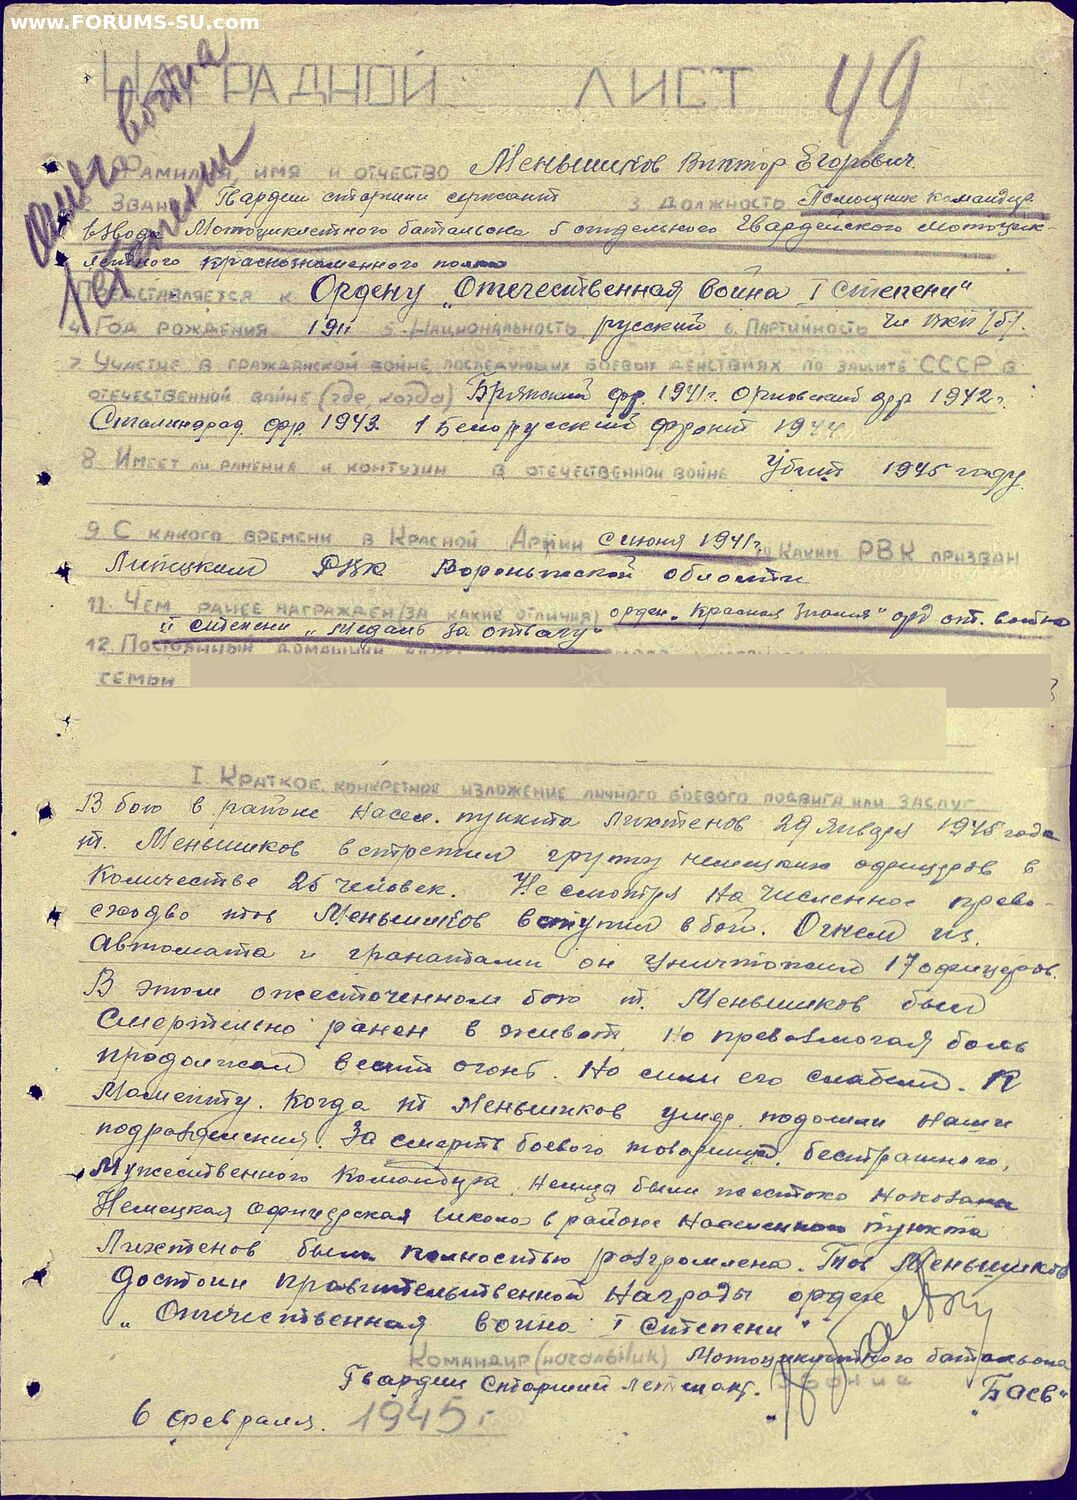 www.FORUMS-SU.com
НАГРАДНОЙ ЛИСТ 49
Отеч война
I степени
Фамилия, имя и отчество Меньшиков Виктор Егорович
2 Звание Гвардии старший сержант 3. Должность Помощник командира
взвода Мотоциклетного батальона 5 отдельного Гвардейского мотоцик-
летного краснознаменного полка
Представляется к Ордену „Отечественная война I степени"
4. Год рождения 1911 5. Национальность русский 6. Партийность чл ВКП(б).
7 Участие в гражданской войне, последующих боевых действиях по защите СССР в
отечественной войне (где, когда) Брянский фр. 1941г. Орловский фр 1942г.
Сталинград. фр. 1943. 1 Белорусский фронт 1944
8. Имеет ли ранения и контузии в отечественной войне Убит 1945 году
9 С какого времени в Красной Армии с июня 1941г. 10 Каким РВК призван
Липецким РВК Воронежской области
11. Чем ранее награжден (за какие отличия) орден „Красная Знамя" орд от. война
II степени „Медаль за отвагу"
12. Постоянный домашний адрес
семьи
I Краткое, конкретное изложение личного боевого подвига или заслуг
В бою в районе насел. пункта Лихтенов 29 Января 1945 года
т. Меньшиков встретил группу немецких офицеров в
количестве 25 человек. Не смотря на численное прево-
сходво тов Меньшиков вступил в бой. Огнем из
Автомата и гранатами он уничтожил 17 офицеров.
В этом ожесточенном бою т. Меньшиков был
Смертельно ранен в живот, но превозмогая боль
продолжал вести огонь. Но силы его слабели. К
Моменту. Когда т Меньшиков умер. подошли наши
подразделения. За смерть боевого товарища, бесстрашного,
Мужественного Командира, немца были жестоко наказана
Немецкая офицерская школа в районе населенного пункта
Лихтенов была полностью разгромлена. Тов Меньшиков
Достоин правительственной Награды орден
„Отечественная война I Степени"
Командир (начальник) Мотоциклетного батальона
Гвардии Старший лейтенант. Звание „Баев"
6 февраля. 1945 г.